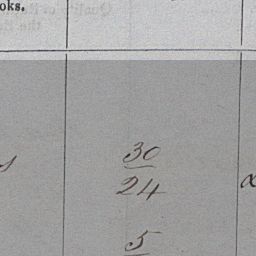 oks.
30
24
5